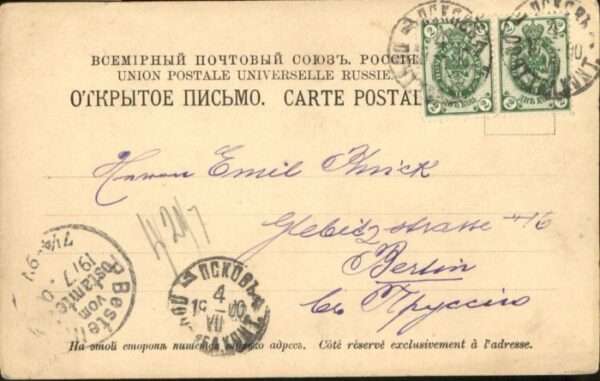 ВСЕМІРНЫЙ ПОЧТОВЫЙ СОЮЗЪ. РОССІЯ
UNION POSTALE UNIVERSELLE RUSSIE.
ОТКРЫТОЕ ПИСЬМО. CARTE POSTAL
2 2 2 2
ПСКОВЪ
Herrn Emil
Glebitzstrasse 46
Berlin
въ Пруссію
ПСКОВЪ
4
VII
Bestellt
vom
Postamte
19/7
На этой сторонѣ пишется только адресъ. Côté réservé exclusivement à l'adresse.